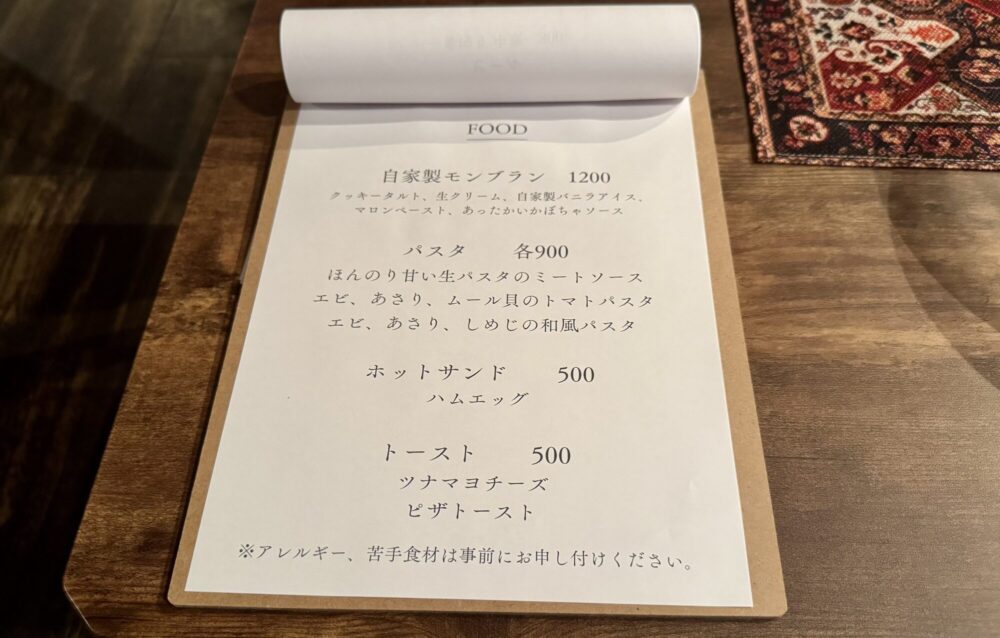 FOOD
自家製モンブラン 1200
クッキータルト、生クリーム、自家製バニラアイス、
マロンペースト、あったかいかぼちゃソース
パスタ 各900
ほんのり甘い生パスタのミートソース
エビ、あさり、ムール貝のトマトパスタ
エビ、あさり、しめじの和風パスタ
ホットサンド 500
ハムエッグ
トースト 500
ツナマヨチーズ
ピザトースト
※アレルギー、苦手食材は事前にお申し付けください。